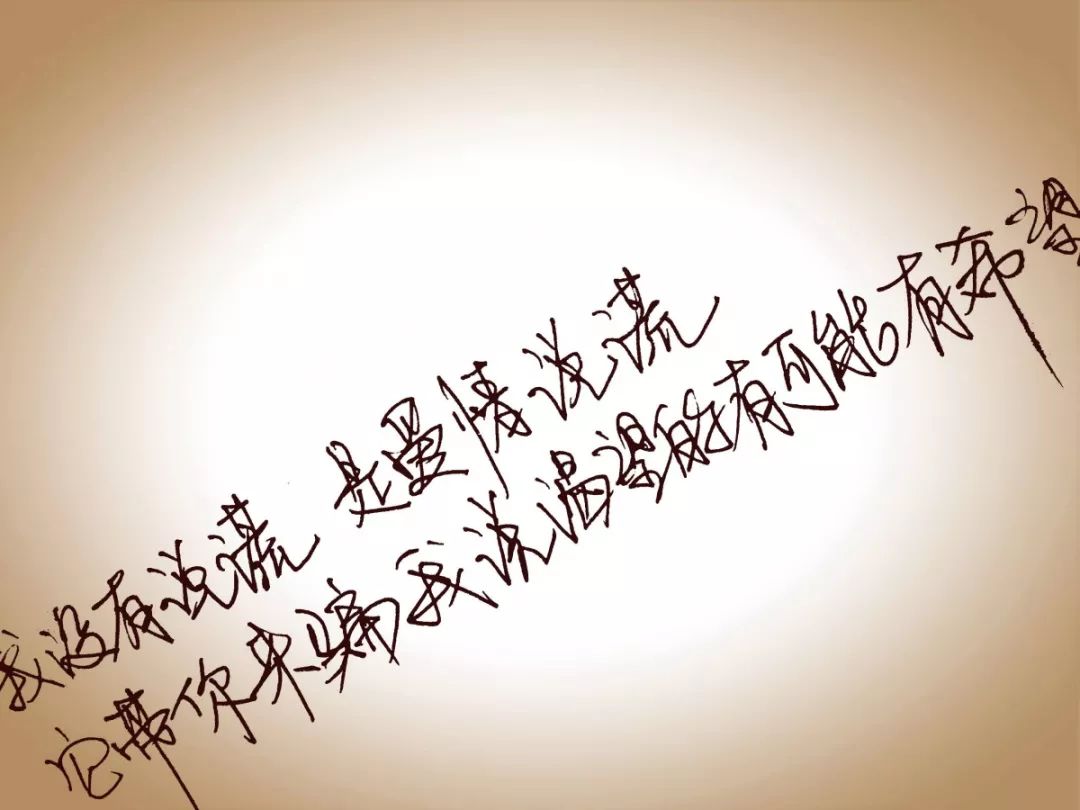 我没有说谎 是爱情说谎
它带你来骗我说渴望的有可能有希望